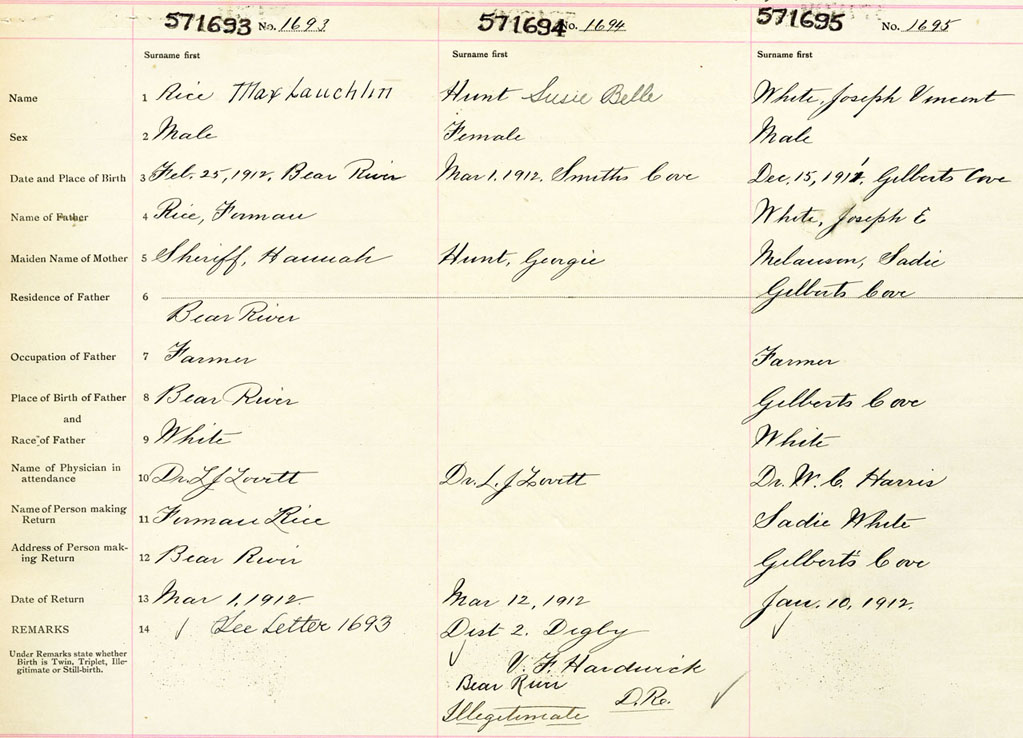 571693 No. 1693 571694 No. 1694 571695 No. 1695
Surname first Surname first Surname first
Name 1 Rice Max Lauchlin Hunt Susie Belle White, Joseph Vincent
Sex 2 Male Female Male
Date and Place of Birth 3 Feb. 25, 1912, Bear River Mar 1. 1912. Smiths Cove Dec. 15, 1911. Gilberts Cove
Name of Father 4 Rice, Forman White, Joseph E
Maiden Name of Mother 5 Sheriff, Hannah Hunt, Georgie Melanson, Sadie
Residence of Father 6 Gilberts Cove
Bear River
Occupation of Father 7 Farmer Farmer
Place of Birth of Father 8 Bear River Gilberts Cove
and
Race of Father 9 White White
Name of Physician in
attendance 10 Dr L J Lovitt Dr. L. J Lovitt Dr. W. C. Harris
Name of Person making
Return 11 Forman Rice Sadie White
Address of Person mak-
ing Return 12 Bear River Gilbert's Cove
Date of Return 13 Mar 1, 1912. Mar 12, 1912 Jan. 10, 1912.
REMARKS 14 See Letter 1693 Dist 2. Digby
Under Remarks state whether
Birth is Twin, Triplet, Ille-
gitimate or Still-birth.
V. F. Hardwick
Bear River
D.R.
Illegitimate